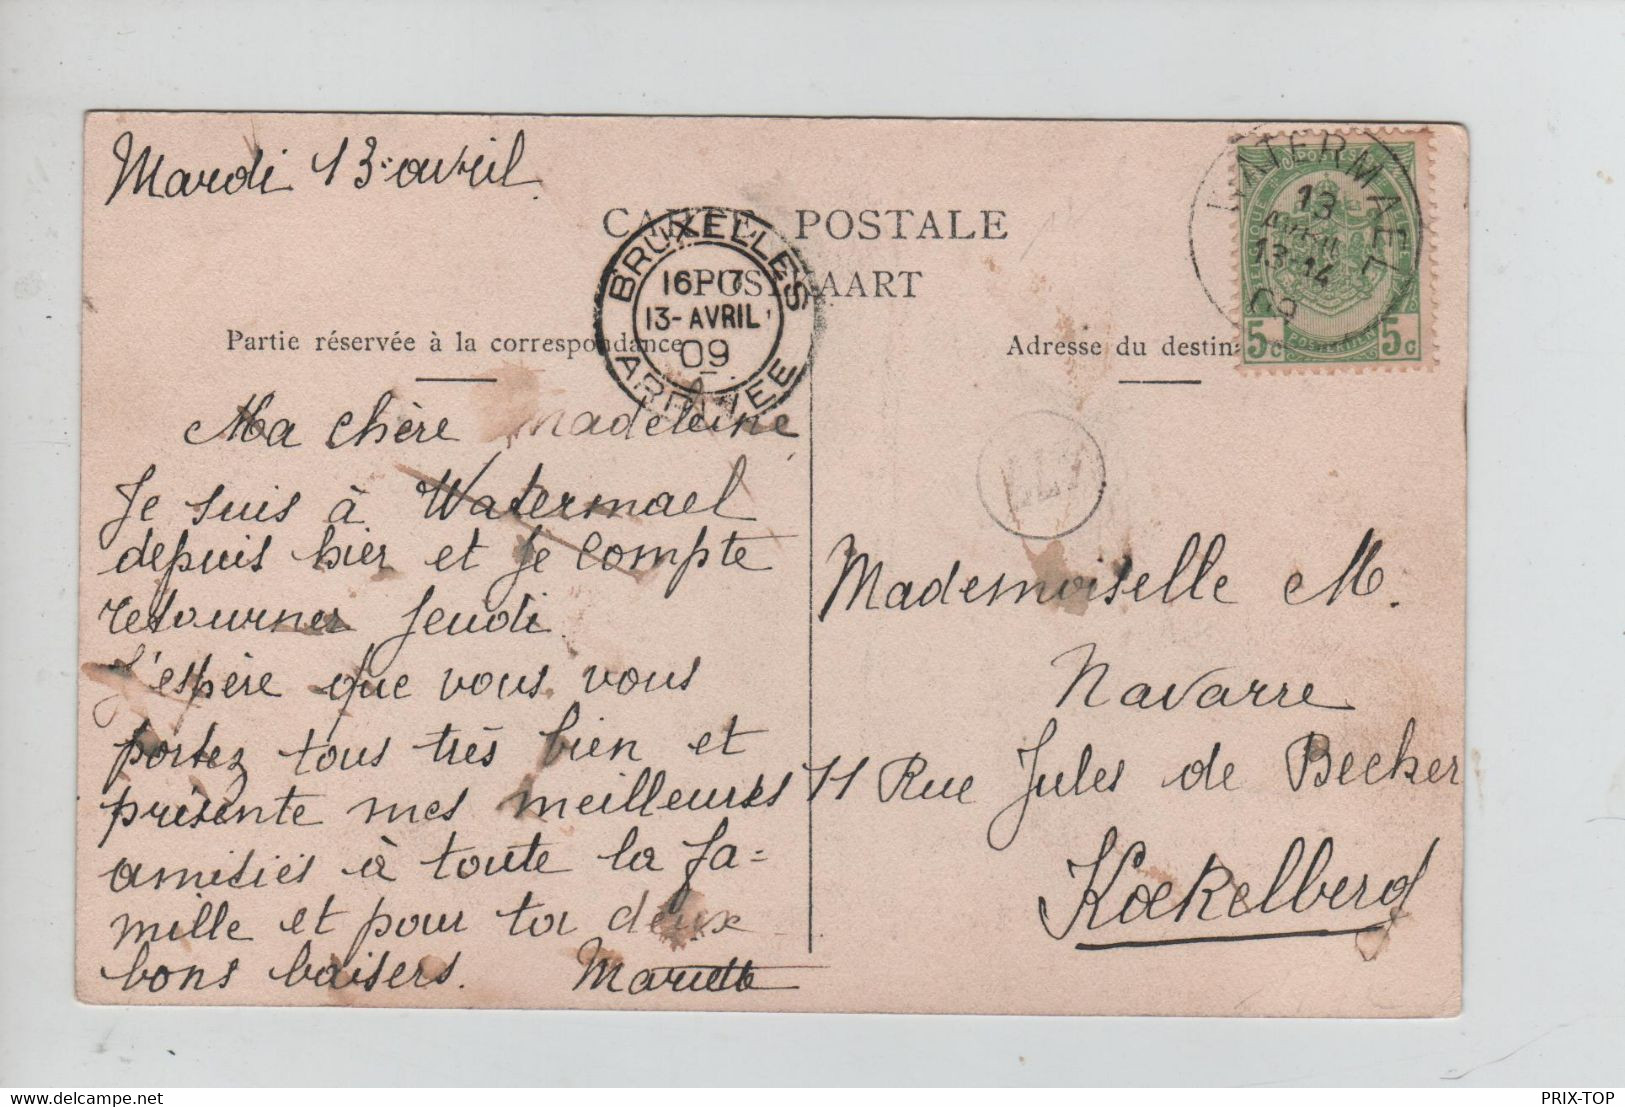 Mardi 13 avril
CARTE POSTALE
POSTKAART
BRUXELLES
16 17
13-AVRIL
09
ARRIVEE
WATERMAEL
13
AVRIL
13-14
09
5c 5c
Partie réservée à la correspondance
Adresse du destin
Ma chère Madeleine,
Je suis à Watermael
depuis hier et je compte
retourner jeudi.
J'espère que vous vous
portez tous très bien et
présente mes meilleures
amitiés à toute la fa=
mille et pour toi deux
bons baisers. Mariette
Mademoiselle M.
Navarre
11 Rue Jules de Becker
Koekelberg
PRIX-TOP